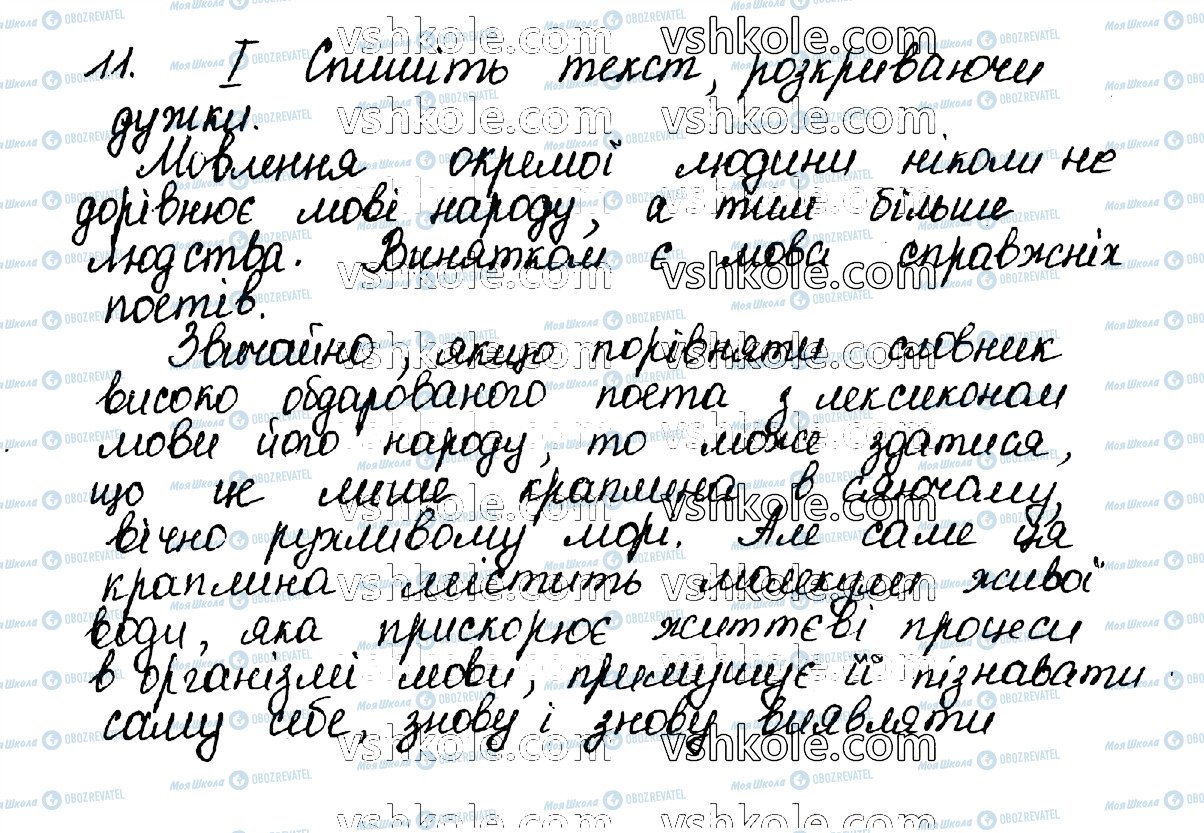 11. I Спишіть текст, розкриваючи
дужки.
Мовлення окремої людини ніколи не
дорівнює мові народу, а тим більше
людства. Винятком є мова справжніх
поетів.
Звичайно, якщо порівняти словник
високо обдарованого поета з лексиконом
мови його народу, то може здатися,
що це лише краплина в сяючому,
вічно рухливому морі. Але саме ця
краплина містить молекули живої
води, яка прискорює життєві процеси
в організмі мови, примушує її пізнавати
саму себе, знову і знову виявляти